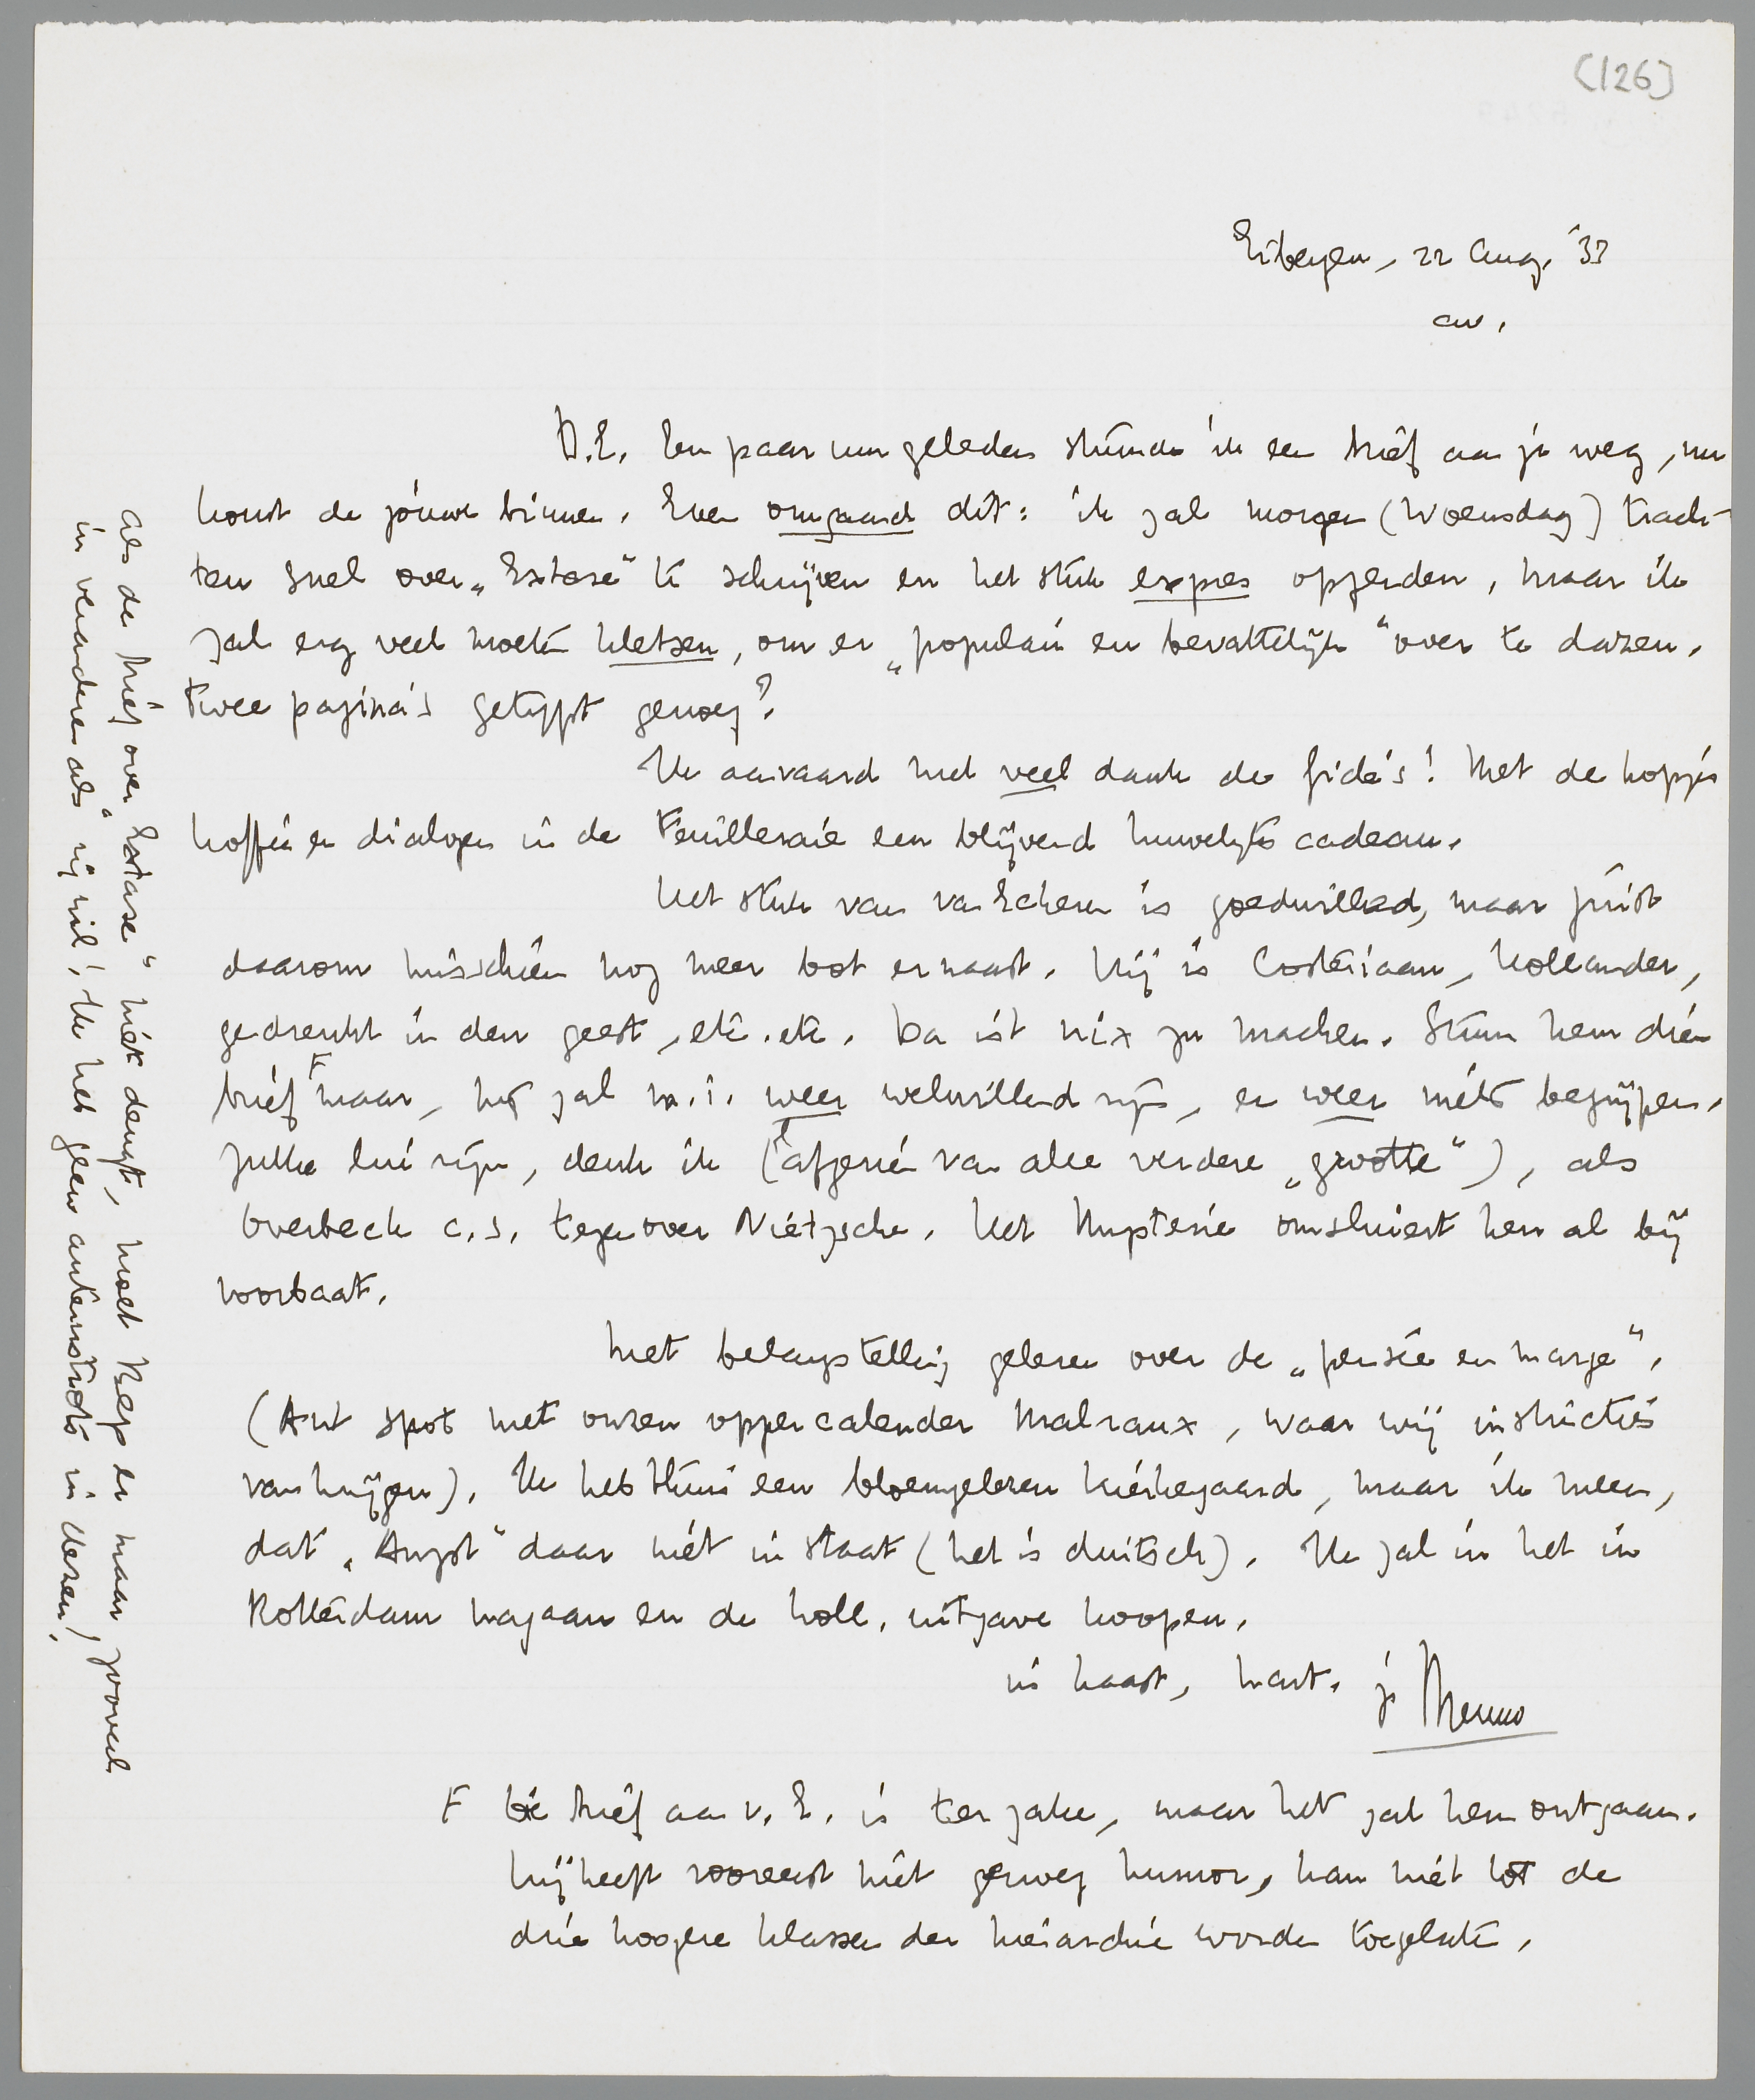 (126)
Eibergen, 22 Aug. '33
av.
D.E. Een paar uur geleden stuurde ik een brief aan je weg, nu
komt de jouwe binnen. Even omgaand dit: ik zal morgen (Woensdag) trach-
ten snel over „Extase" te schrijven en het stuk expres opzenden, maar ik
zal erg veel moeten kletsen, om er „populair en bevattelijk" over te dazen.
Twee pagina's getypt genoeg?
Ik aanvaard met veel dank de Gide's! Met de kopjes
koffie en dialogen in de Feuilleraie een blijvend huwelijks cadeau.
Het stuk van van Eckeren is goedwillend, maar juist
daarom misschien nog meer bot ernaast. Hij is Costeriaan, Hollander,
gedrenkt in den geest, etc. etc. Da ist nix zu machen. Stuur hem dien
brief F maar, hij zal m.i. weer welwillend zijn, en weer niets begrijpen.
Zulke lui zijn, denk ik (afgezien van alle verdere „grootte"), als
Overbeck c.s. tegenover Nietzsche. Het Mysterie omsluiert hen al bij
voorbaat.
Met belangstelling gelezen over de „pensée en marge".
(Ant spot met onzen oppercalender Malraux, waar wij instructies
van krijgen). Ik heb thuis een bloemgelezen Kierkegaard, maar ik meen,
dat „Angst" daar niet in staat (het is duitsch). Ik zal in het in
Rotterdam nagaan en de holl. uitgave koopen.
in haast, hart. je Menno
F De brief aan v. E. is ter zake, maar het zal hem ontgaan.
Hij heeft vooreerst niet genoeg humor, kan niet tot de
drie hoogere klassen der hiërarchie worden toegelaten.
Als de brief over „Extase" niet deugt, moet Bep er maar zooveel
in veranderen als zij wil! Ik heb geen auteurstrots in dezen!